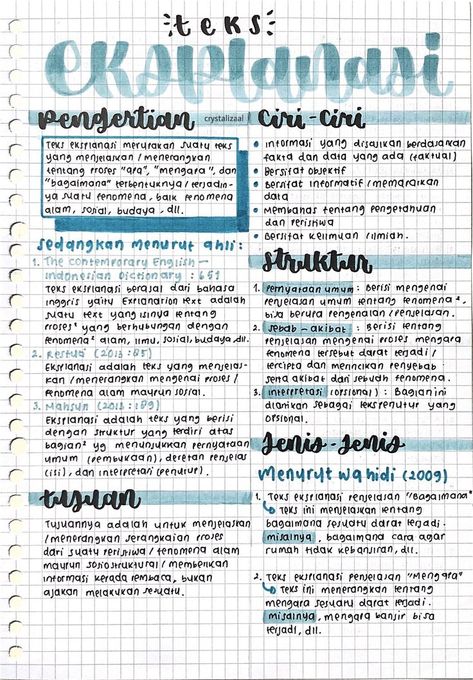 teks
eksplanasi
pengertian
crystalizaal
Teks eksplanasi merupakan suatu teks
yang menjelaskan / menerangkan
tentang proses "apa", "mengapa", dan
"bagaimana" terbentuknya / terjadin-
ya suatu fenomena, baik fenomena
alam, sosial, budaya, dll.
sedangkan menurut ahli :
1. The contemporary English –
Indonesian Dictionary : 651
Teks eksplanasi berasal dari bahasa
inggris yaitu Explanation text adalah
suatu text yang isinya tentang
proses² yang berhubungan dengan
fenomena² alam, ilmu, sosial, budaya, dll.
2. Restuti (2013 : 85)
Eksplanasi adalah teks yang menjelas-
kan / menerangkan mengenai proses /
fenomena alam maupun sosial.
3. Mahsun (2013 : 189)
Eksplanasi adalah teks yang berisi
dengan struktur yang terdiri atas
bagian² yg menunjukkan pernyataan
umum (pembukaan), deretan penjelas
(isi), dan interpretasi (penutup).
tujuan
Tujuannya adalah untuk menjelaskan
/ menerangkan serangkaian proses
dari suatu peristiwa / fenomena alam
maupun sosiostruktural / memberikan
informasi kepada pembaca, bukan
ajakan melakukan sesuatu.
Ciri - Ciri
• Informasi yang disajikan berdasarkan
fakta dan data yang ada (faktual)
• Bersifat objektif
• Bersifat informatif / memaparkan
data
• Membahas tentang pengetahuan
dan peristiwa
• Bersifat keilmuan / ilmiah.
struktur
1. Pernyataan umum : berisi mengenai
penjelasan umum tentang fenomena²,
bisa berupa pengenalan / penjelasan.
2. sebab - akibat : berisi tentang
penjelasan mengenai proses mengapa
fenomena tersebut dapat terjadi /
tercipta dan merincikan penyebab
serta akibat dari sebuah fenomena.
3. Interpretasi (opsional) : Bagian ini
dijadikan sebagai teks penutup yang
opsional.
Jenis - Jenis
Menurut wahidi (2009)
1. Teks eksplanasi penjelasan "Bagaimana"
↳ Teks ini menjelaskan tentang
bagaimana sesuatu dapat terjadi.
misalnya, bagaimana cara agar
rumah tidak kebanjiran, dll.
2. Teks eksplanasi penjelasan "Mengapa"
↳ Teks ini menerangkan tentang
mengapa sesuatu dapat terjadi.
misalnya, mengapa banjir bisa
terjadi, dll.